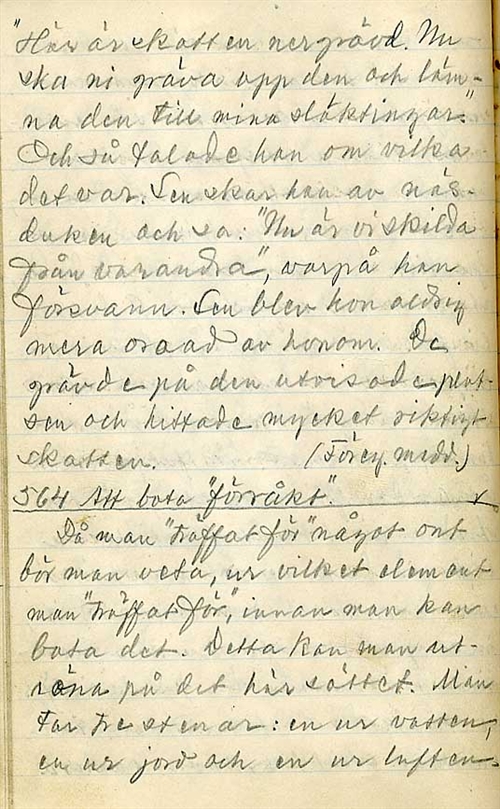 "Här är skatten nergrävd. Nu
ska ni gräva opp den och läm-
na den till mina släktingar."
Och så talade han om vilka
det var. Sen skar han av näs-
duken och sa: "Nu är vi skilda
från varandra", varpå han
försvann. Sen blev hon aldrig
mera oroad av honom. De
grävde på den utvisade plat-
sen och hittade mycket riktigt
skatten. (Föreg. medd.)
564 Att bota "förråkt".
Då man "träffat för" något ont
bör man veta, ur vilket element
man "träffat för", innan man kan
bota det. Detta kan man ut-
röna på det här sättet. Man
tar tre stenar: en ur vatten,
en ur jord och en ur luften.